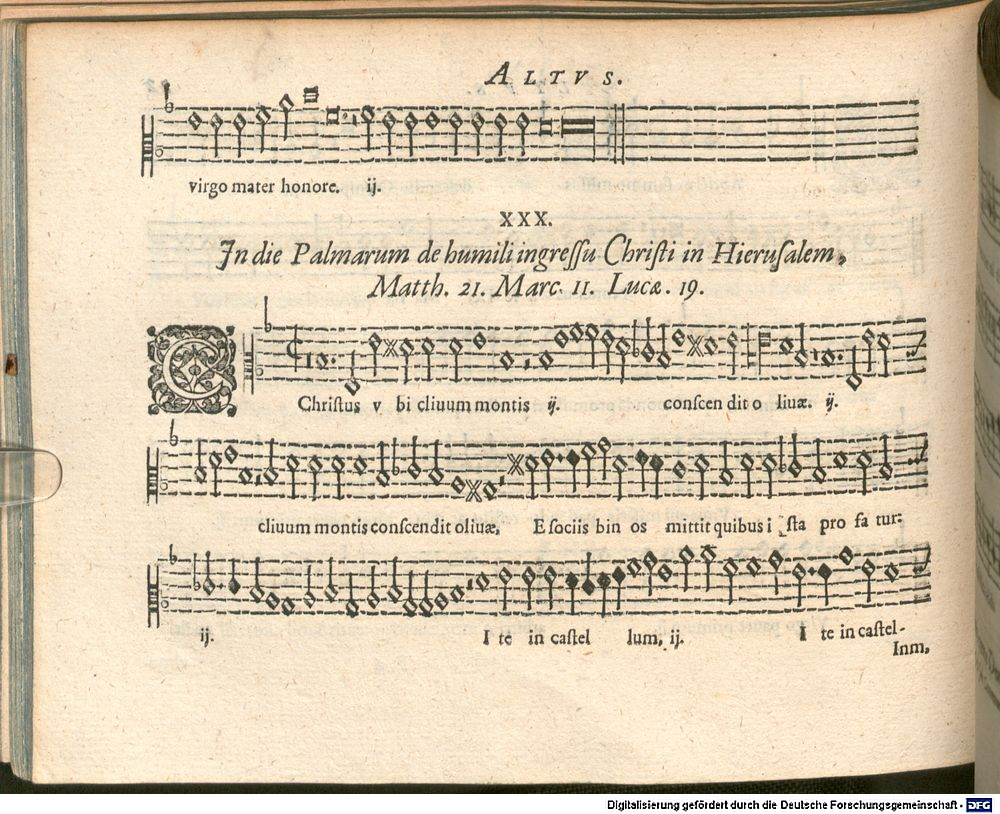 ALTVS.
virgo mater honore. ij.
XXX.
In die Palmarum de humili ingreſſu Chriſti in Hieruſalem,
Matth. 21. Marc. 11. Lucæ. 19.
Chriſtus v bi cliuum montis ij. conſcen dit o liuæ. ij.
cliuum montis conſcendit oliuæ, E ſociis bin os mittit quibus i ſta pro fa tur:
ij. I te in caſtel lum, ij. I te in caſtel-
lum,
Digitalisierung gefördert durch die Deutsche Forschungsgemeinschaft - DFG